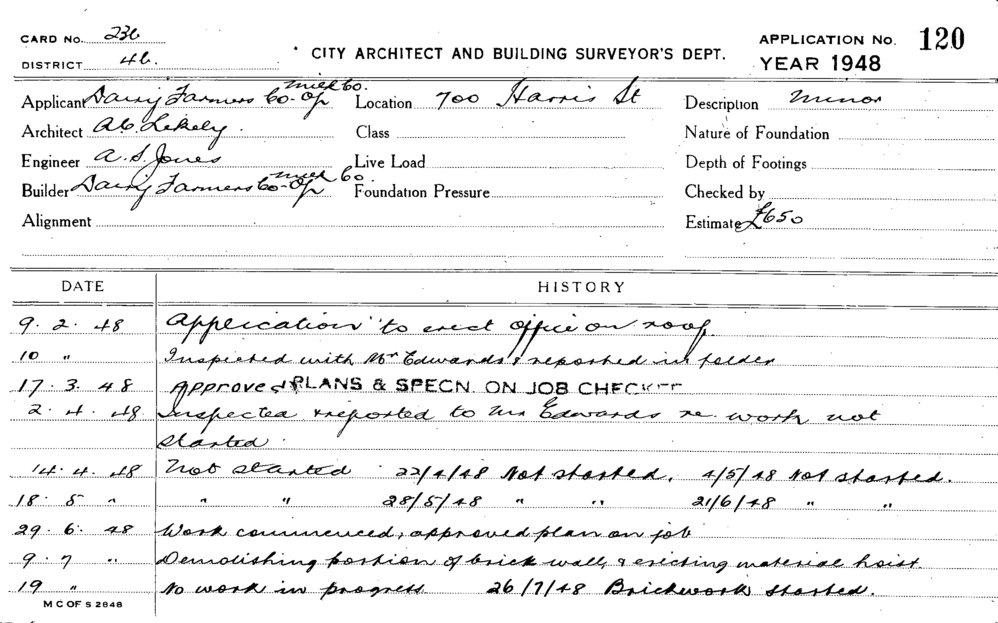 CARD No. 236
DISTRICT 46.
CITY ARCHITECT AND BUILDING SURVEYOR'S DEPT.
APPLICATION No. 120
YEAR 1948
Applicant Dairy Farmers Co-Op Milk Co. Location 700 Harris St Description Minor
Architect A.C. Lekely. Class Nature of Foundation
Engineer A. S. Jones Live Load Depth of Footings
Builder Dairy Farmers Co-Op Milk Co. Foundation Pressure Checked by
Alignment Estimate £650
DATE HISTORY
9. 2. 48 Application to erect office on roof.
10 " Inspected with Mr Edwards & reported in folder
17. 3. 48 Approved PLANS & SPECN. ON JOB CHECKED
2. 4. 48 Inspected & reported to Mr Edwards re work not
started.
14. 4. 48 Not started 22/4/48 Not started. 4/5/48 Not started.
18. 5 " " " 28/5/48 " " 21/6/48 " "
29. 6. 48 Work commenced, approved plan on job
9. 7 " Demolishing portion of brick wall, & erecting material hoist.
19 " No work in progress 26/7/48 Brickwork started.
M C OF S 2848